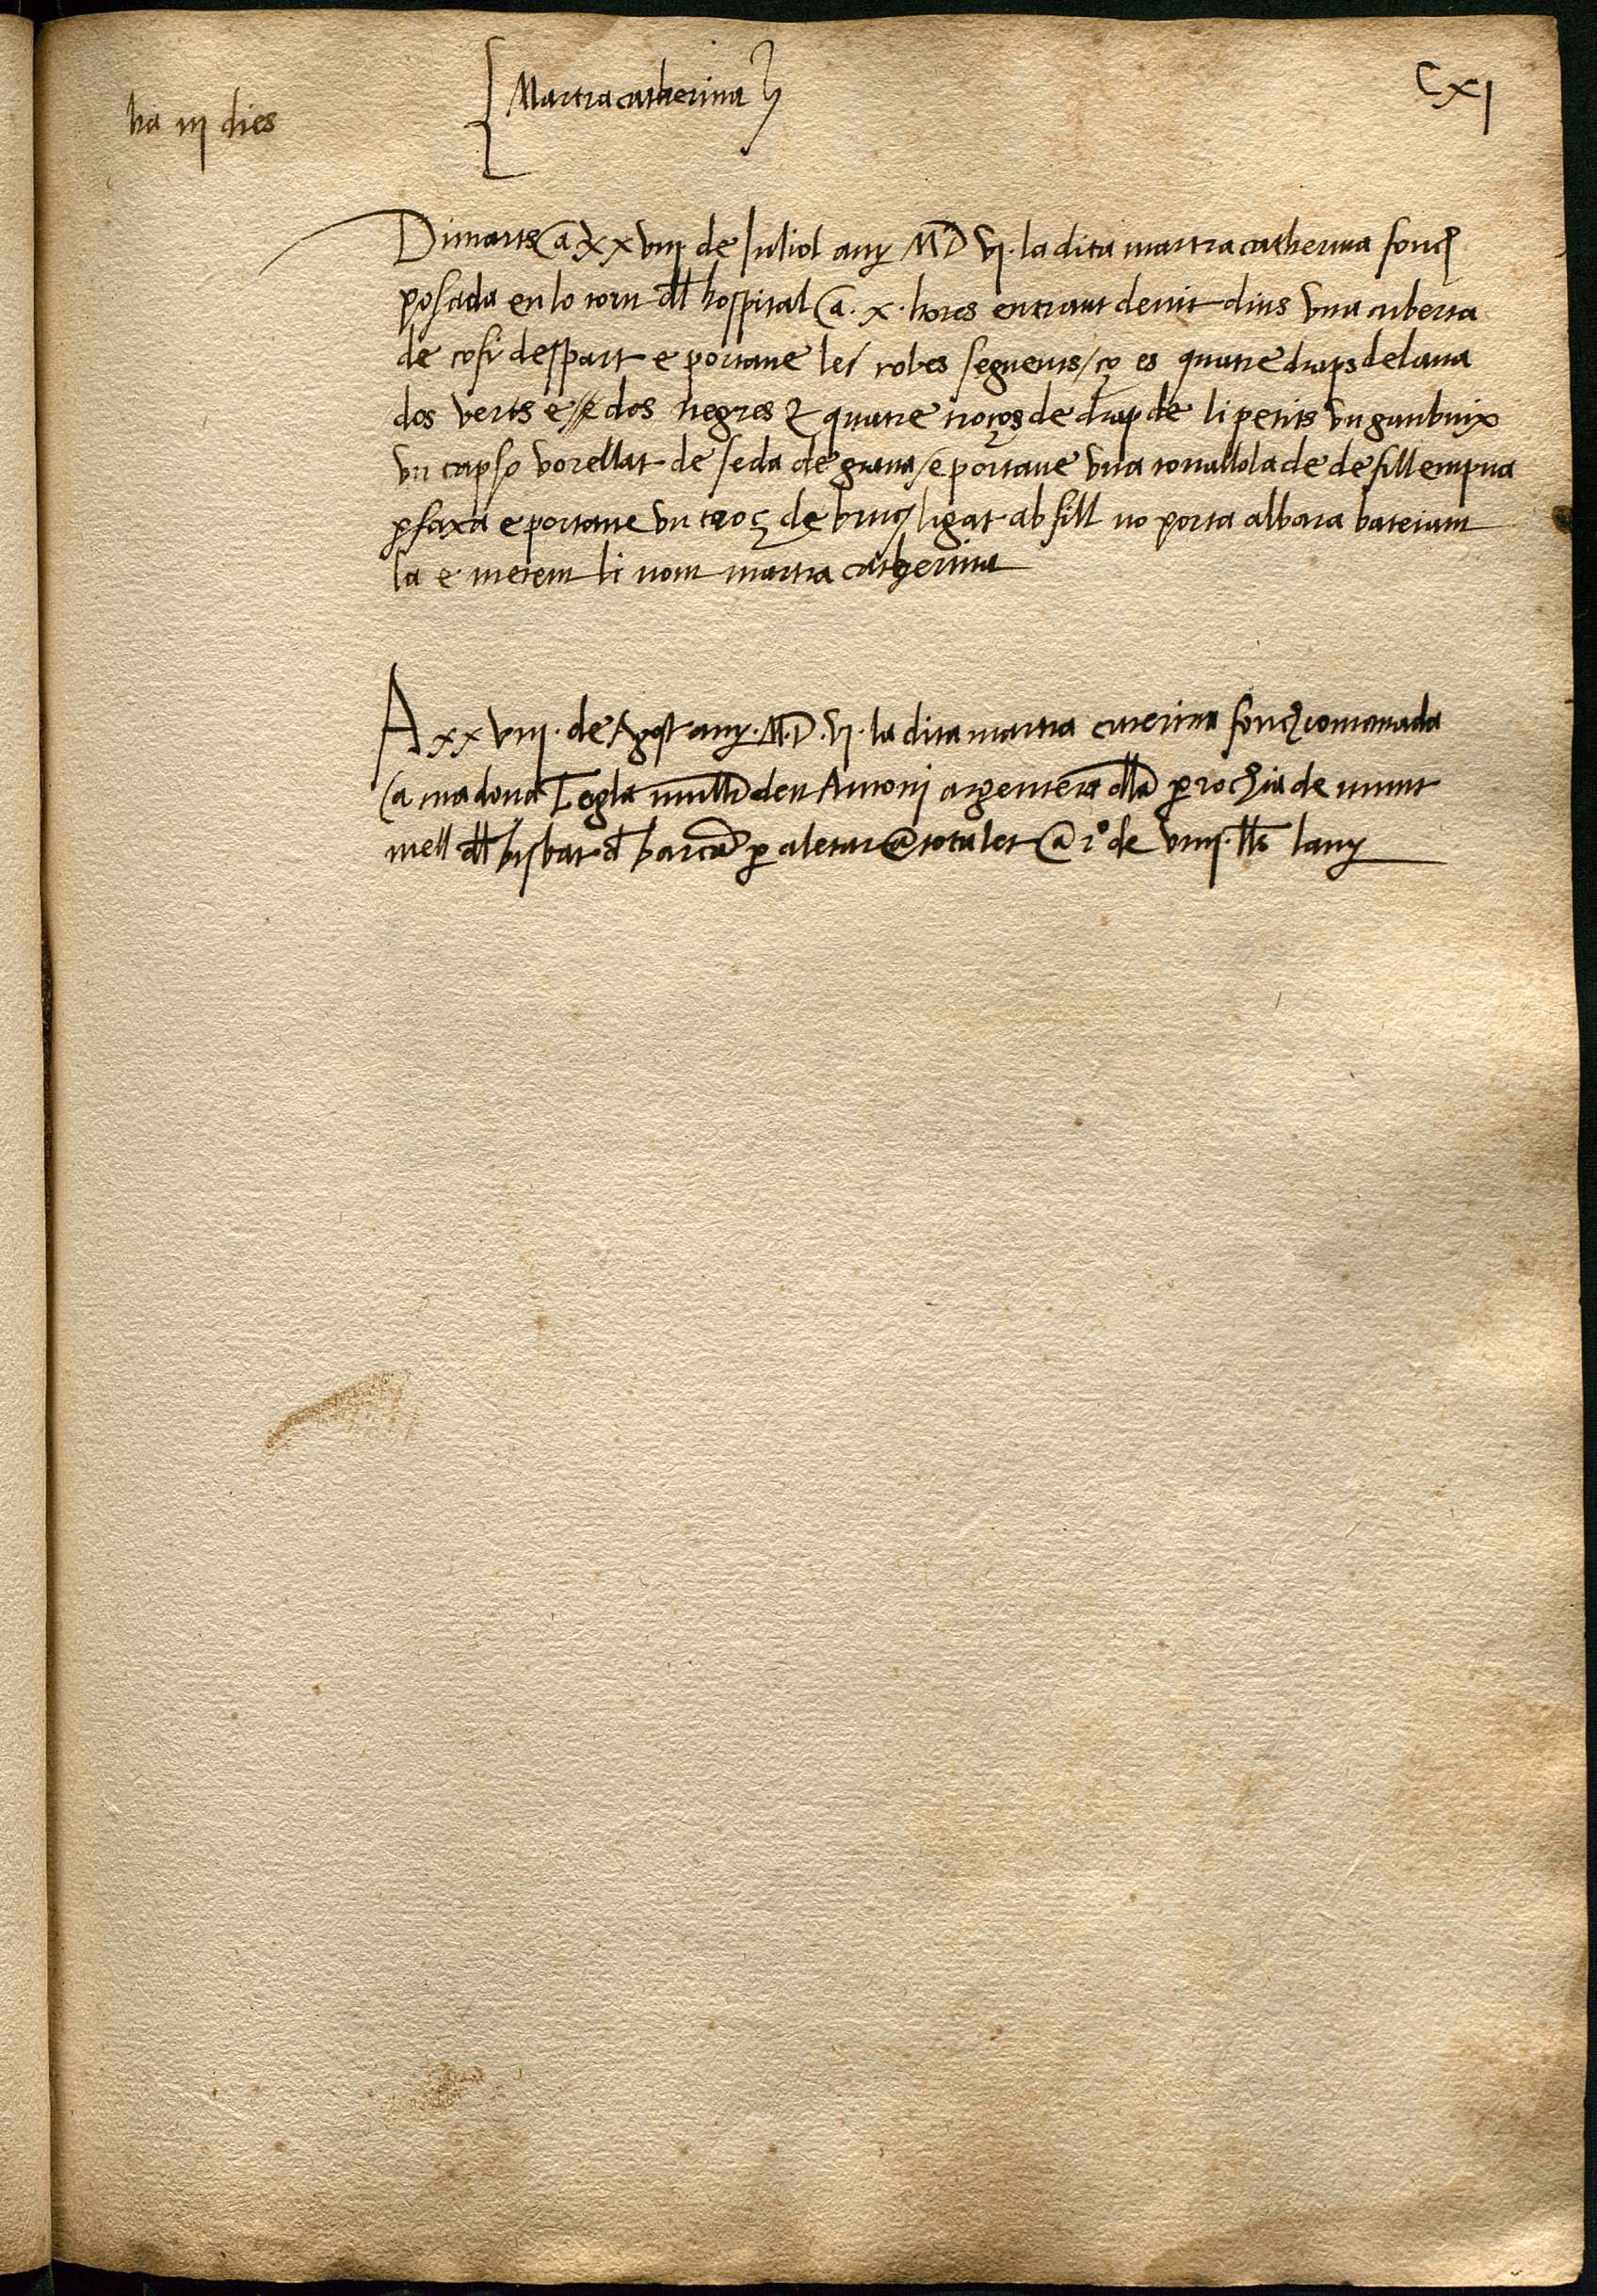 CXI
Martra catherina
ha iij dies
Dimarts a xxviij de Juliol any M D vj · la dita martra catherina fonch
posada en lo torn dll hospital a · x · hores entrant de nit dins vna cuberta
de cofi despart e portaue les robes seguents / ço es quatre draps de lana
dos verts e dos negres & quatre troços de drap de li petits vn ganbuix
vn capso vorellat de seda de grana / e portaue vna touallola de de fill empua
p faxa e portaue vn troç de bruç ligat ab fill no porta albara bateiam
la e metem li nom martra catherina
A xxviij · de Agost any · M · D · vj · la dita martra caterina fonch comanada
a madona Tegla mullr den Antoni argenter dlla prochia de munt
mell dll bisbat d barca p aletar a tota let a ro de viiij · lls lany